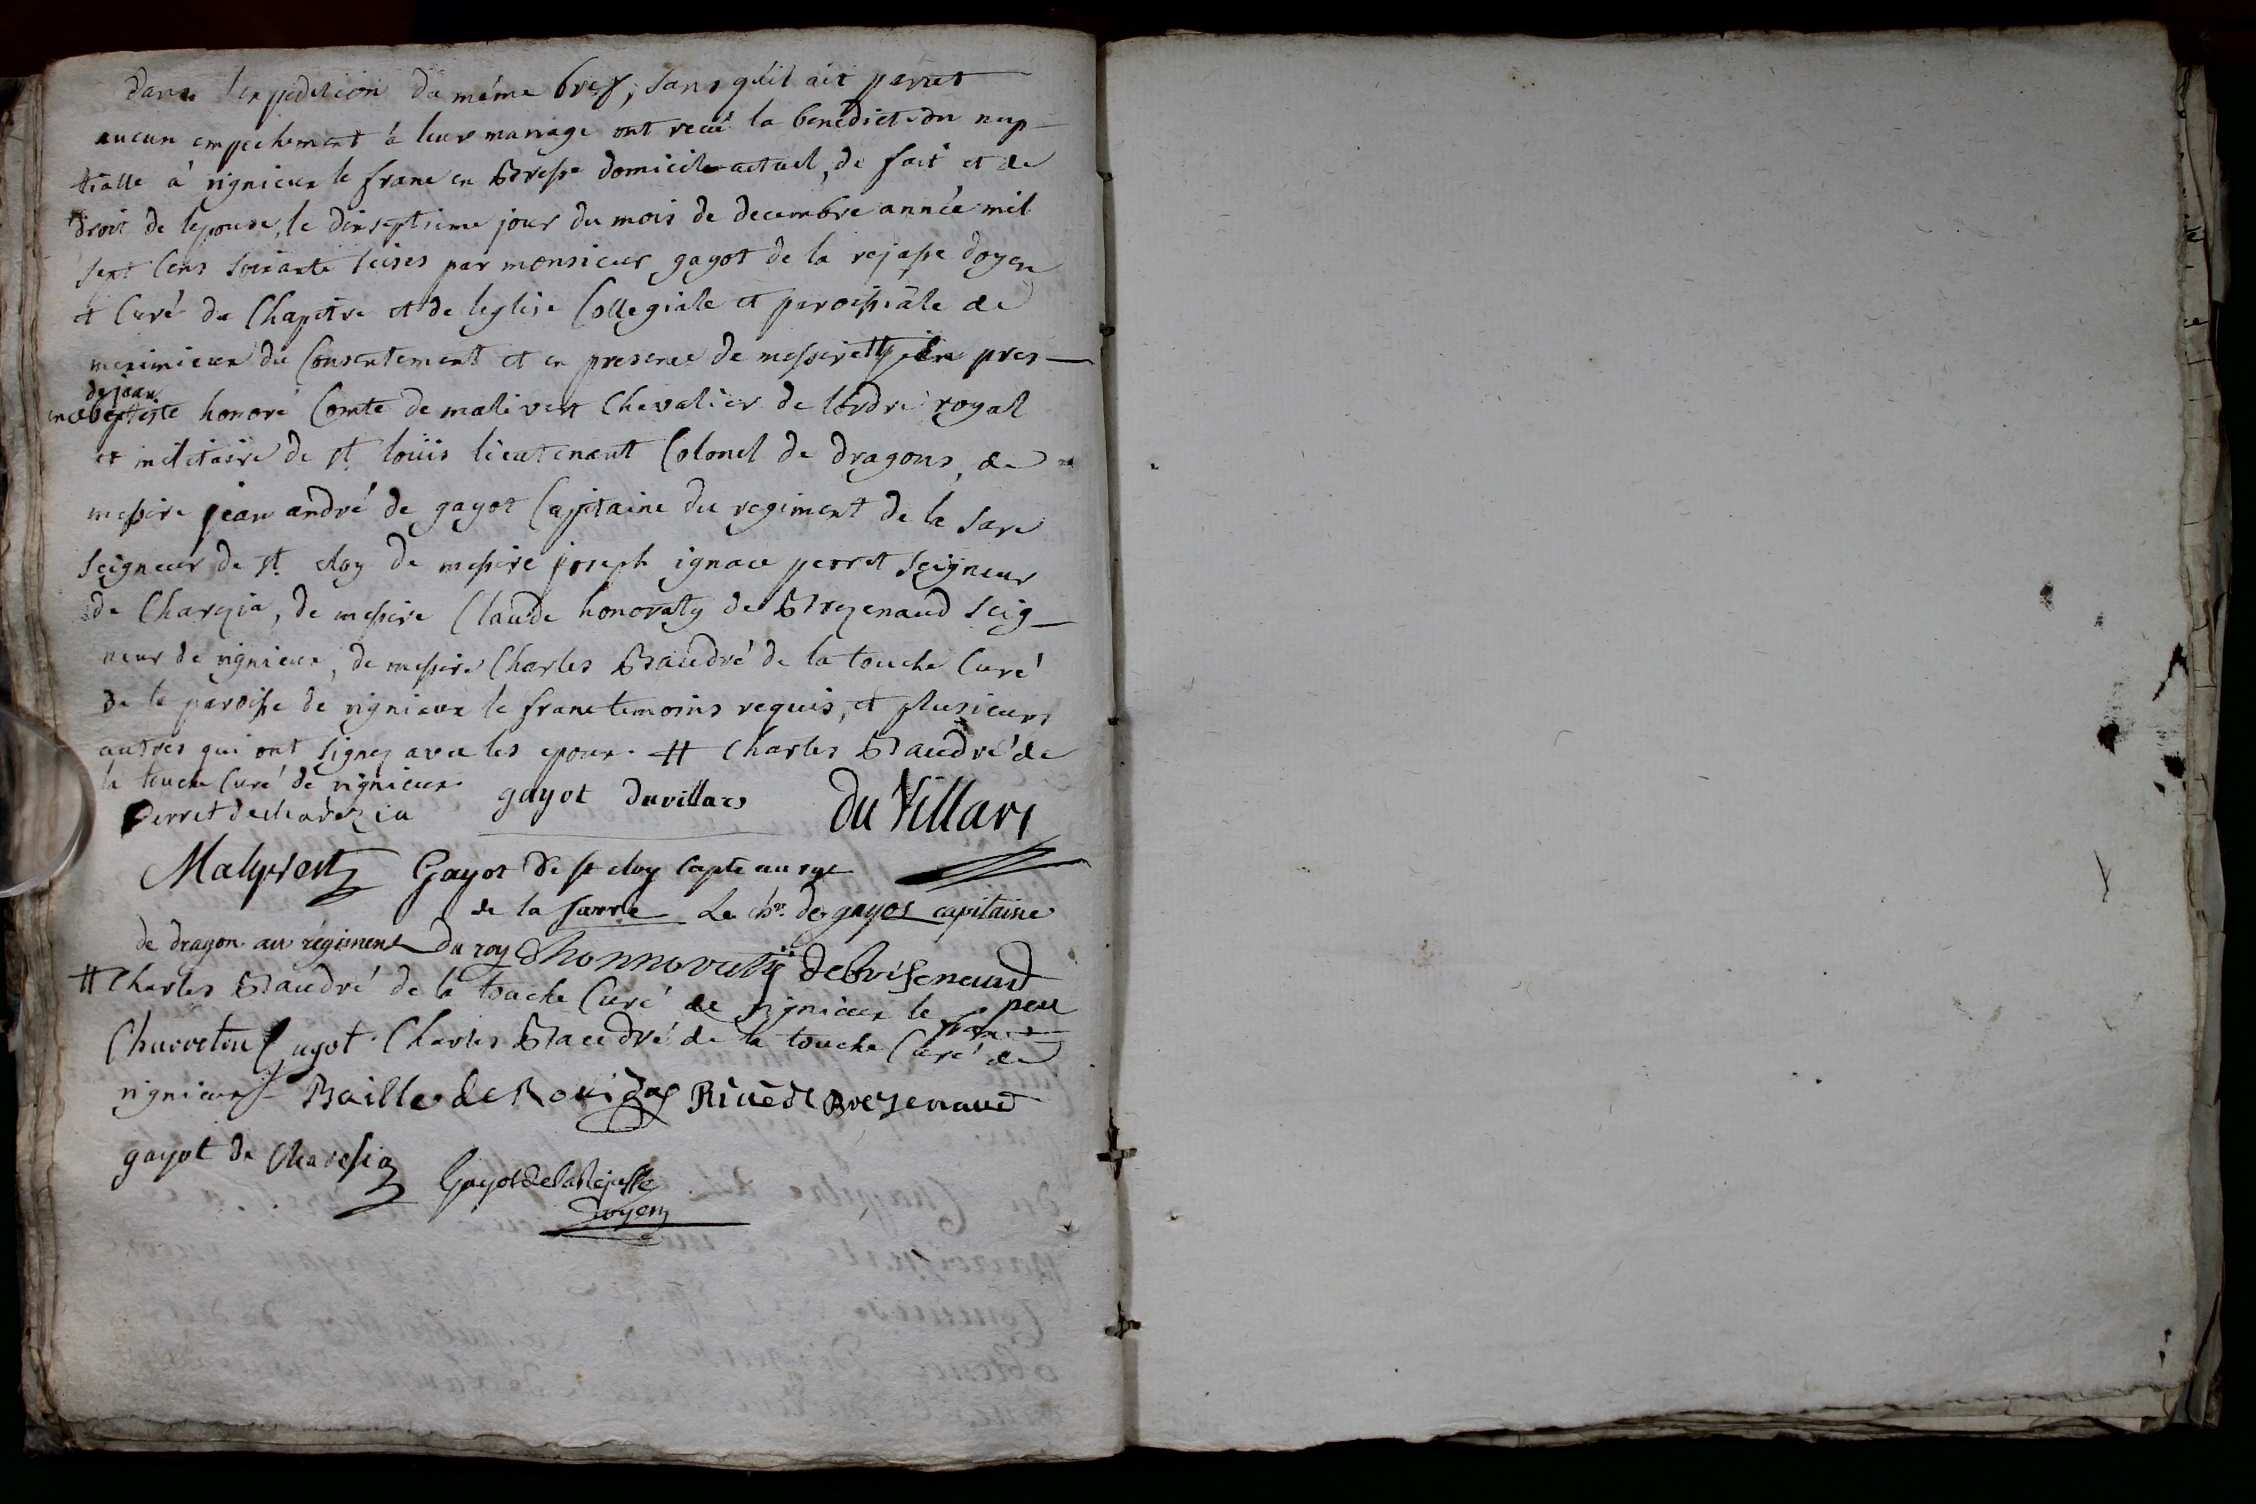 dans lexpedition du même bref, sans quil ait parut
aucun empechement à leur mariage ont recü la benediction nup-
tialle à rignieux le franc en Bresse domicile actuel, de fait et de
droit de lepouse, le dixseptieme jour du mois de decembre année mil
sept cens soixante seises par monsieur gayot de la rejasse doyen
et curé du Chapitre et de leglise Collegiale et paroissiale de
meximieux du Consentement et en presence de messire en pres-
de jean
ence baptiste honoré Comte de malivert Chevalier de lordre royal
et militaire de st. loüis lieutenant Colonel de dragons, de
messire jean andré de gayot Capitaine du regiment de la Sare
Seigneur de st. eloy de messire joseph ignace perret Seigneur
de Charezia, de messire Claude honoraty de Brezenaud Seig-
neur de rignieux, de messire Charles Baudré de la touche Curé
de la paroisse de rignieux le franc temoins requis, et plusieurs
autres qui ont signez avec les epoux. # Charles Baudré de
la touche Curé de rignieux
Perret de charezia gayot duvillars Du Villars
Malyvert Gayot de st eloy capte au rgt
de la sarre Le chr. de gayot capitaine
de dragon au régiment du roy honnoraty de brisenaud
# Charles Baudré de la touche Curé de rignieux le franc
Charles Baudré de la touche Curé de
rignieux Baille de Rivè de Brezenaud
gayot de Charesia Gayot de la Rejasse
doyen